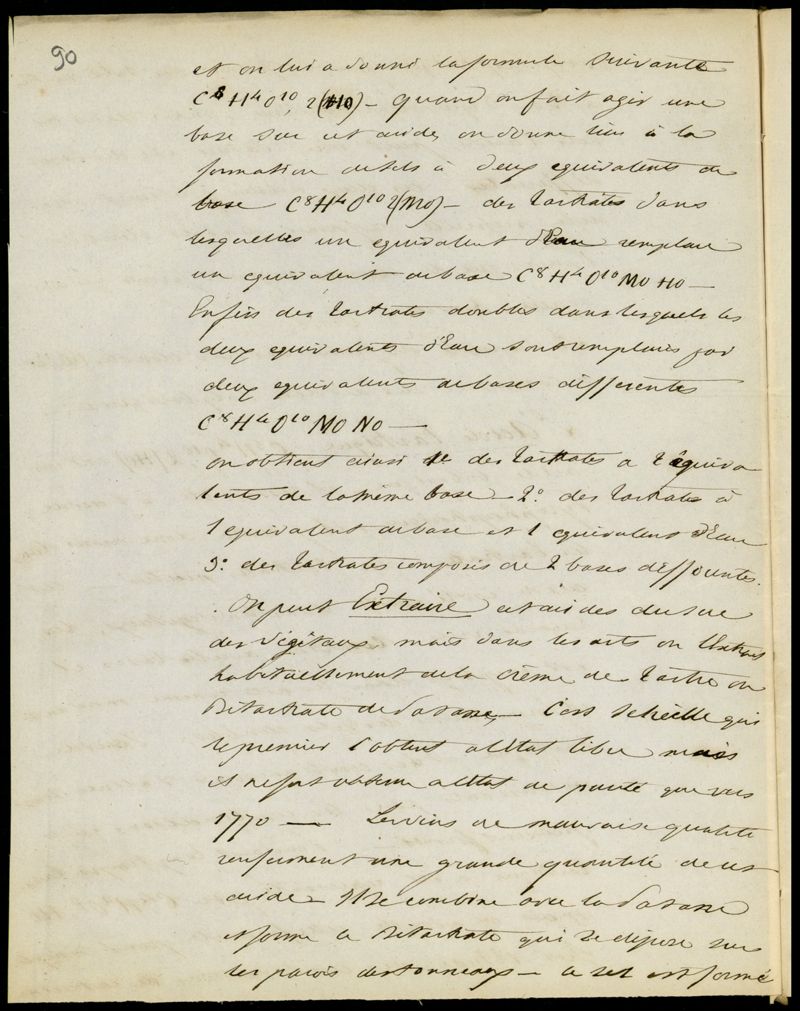 90
et on lui a donné la formule suivante
C⁸H⁴O¹⁰, 2(HO) — quand on fait agir une
base sur cet acide, on donne lieu à la
formation de sels à deux equivalents de
base C⁸H⁴O¹⁰2(MO) — des tartrates dans
lesquelles un equivalent d'Eau remplace
un equivalent de base C⁸H⁴O¹⁰MO HO —
Enfin des tartrates doubles dans lesquels les
deux equivalents d'Eau sont remplacés par
deux equivalents de bases différentes
C⁸H⁴O¹⁰ MO NO —
on obtient ainsi des tartrates a 2 équiva
lents de la même base — 2° des tartrates à
1 equivalent de base et 1 equivalent d'Eau
3° des tartrates composés de 2 bases différentes.
. On peut Extraire cet acide du suc
des végétaux mais dans les arts on l'extrait
habituellement de la crème de tartre ou
Bitartrate de Potasse, — C'est Scheèlle qui
le premier l'obtint a l'Etat libre mais
il ne fut obtenu a l'Etat de pureté que vers
1770 — Les vins de mauvaise qualité
renferment une grande quantité de cet
acide — Il se combine avec la Potasse
et forme ce Bitartrate qui se dépose sur
les parois des tonneaux — ce sel est formé